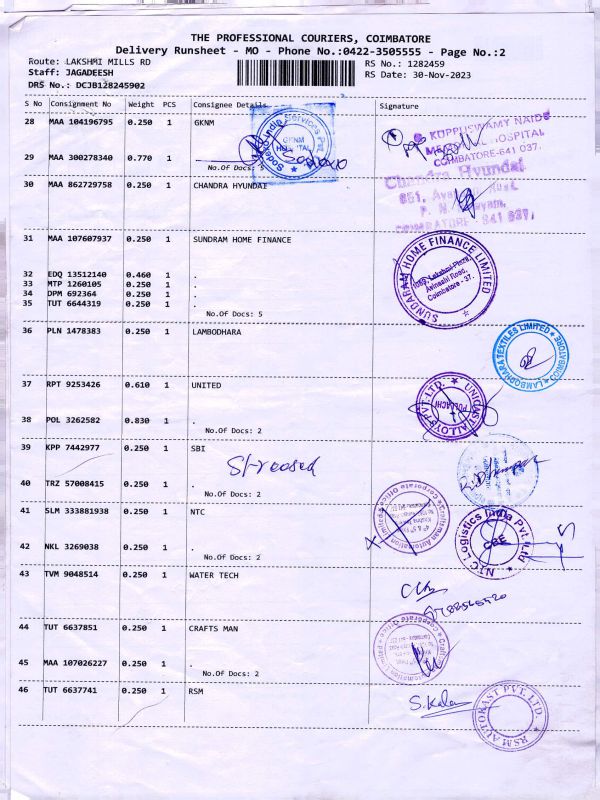 THE PROFESSIONAL COURIERS, COIMBATORE
Delivery Runsheet - MO - Phone No.:0422-3505555 - Page No.:2
Route: LAKSHMI MILLS RD RS No.: 1282459
Staff: JAGADEESH RS Date: 30-Nov-2023
DRS No.: DCJB128245902
S No Consignment No Weight PCS Consignee Details Signature
28 MAA 104196795 0.250 1 GKNM
G. KUPPUSWAMY NAIDU
HOSPITAL
COIMBATORE-641 037.
GKNM
29 MAA 300278340 0.770 1
No.Of Docs: 5
30 MAA 862729758 0.250 1 CHANDRA HYUNDAI
Chandra Hyundai
31 MAA 107607937 0.250 1 SUNDRAM HOME FINANCE
SUNDARAM HOME FINANCE LIMITED
Avinashi Road,
Coimbatore - 37.
32 EDQ 13512140 0.460 1 .
33 MTP 1260105 0.250 1 .
34 DPM 692364 0.250 1 .
35 TUT 6644319 0.250 1 .
No.Of Docs: 5
36 PLN 1478383 0.250 1 LAMBODHARA
LAMBODHARA TEXTILES LIMITED COIMBATORE
37 RPT 9253426 0.610 1 UNITED
POLLACHI
38 POL 3262582 0.830 1 .
No.Of Docs: 2
39 KPP 7442977 0.250 1 SBI
40 TRZ 57008415 0.250 1 .
No.Of Docs: 2
41 SLM 333881938 0.250 1 NTC
Craftsman Automation Limited
Corporate Office
NTC Logistics India Pvt. Ltd
CBE
42 NKL 3269038 0.250 1 .
No.Of Docs: 2
43 TVM 9048514 0.250 1 WATER TECH
44 TUT 6637851 0.250 1 CRAFTS MAN
Corporate Office
45 MAA 107026227 0.250 1 .
No.Of Docs: 2
46 TUT 6637741 0.250 1 RSM
S. Kala
RSM AUTOKAST PVT. LTD.